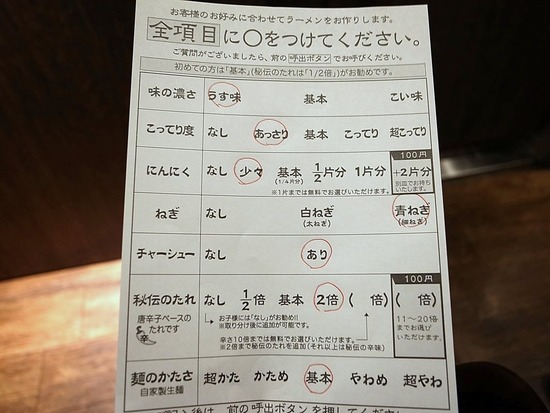 お客様のお好みに合わせてラーメンをお作りします。
全項目に〇をつけてください。
ご質問がございましたら、前の呼出ボタンでお呼びください。
初めての方は「基本」(秘伝のたれは「1/2倍」)がお勧めです。
味の濃さ うす味 基本 こい味
こってり度 なし あっさり 基本 こってり 超こってり
100円
にんにく なし 少々 基本 1/2片分 1片分 +2片分
(1/4片分)
別皿でお持ち
いたします。
※1片までは無料でお選びいただけます。
ねぎ なし 白ねぎ 青ねぎ
(太ねぎ) (細ねぎ)
チャーシュー なし あり
100円
秘伝のたれ なし 1/2倍 基本 2倍 ( 倍) ( 倍)
唐辛子ベースの
たれです
お子様には「なし」がお勧め!!
※取り分け後に追加が可能です。
11〜20倍
までお選び
いただけます。
辛さ10倍までは無料でお選びいただけます。
※2倍まで秘伝のたれを追加(それ以上は秘伝の辛味)
麺のかたさ 超かた かため 基本 やわめ 超やわ
自家製生麺
後は、前の呼出ボタンを押してく